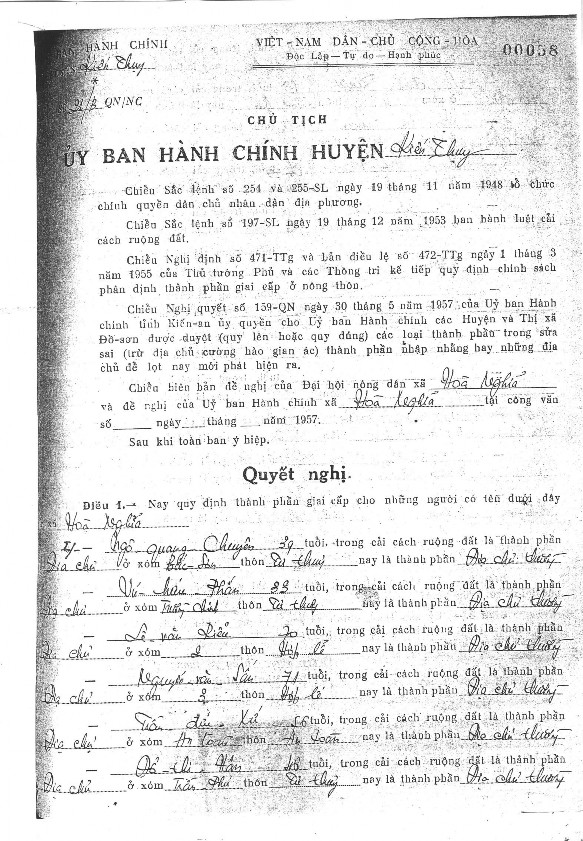 HÀNH CHÍNH
Kiến Thụy
VIỆT-NAM DÂN-CHỦ CỘNG-HÒA
Độc Lập — Tự do — Hạnh phúc
00058
*
QN/NC
CHỦ TỊCH
ỦY BAN HÀNH CHÍNH HUYỆN Kiến Thụy
Chiểu Sắc lệnh số 254 và 255-SL ngày 19 tháng 11 năm 1948 tổ chức
chính quyền dân chủ nhân dân địa phương.
Chiểu Sắc lệnh số 197-SL ngày 19 tháng 12 năm 1953 ban hành luật cải
cách ruộng đất.
Chiểu Nghị định số 471-TTg và bản điều lệ số 472-TTg ngày 1 tháng 3
năm 1955 của Thủ tướng Phủ và các Thông tri kế tiếp quy định chính sách
phân định thành phần giai cấp ở nông thôn.
Chiểu Nghị quyết số 159-QN ngày 30 tháng 5 năm 1957 của Uỷ ban Hành
chính tỉnh Kiến-an ủy quyền cho Uỷ ban Hành chính các Huyện và Thị xã
Đồ-sơn được duyệt (quy lên hoặc quy đúng) các loại thành phần trong sửa
sai (trừ địa chủ cường hào gian ác) thành phần nhập nhằng hay những địa
chủ để lọt nay mới phát hiện ra.
Chiểu biên bản đề nghị của Đại hội nông dân xã Hoà Nghĩa
và đề nghị của Uỷ ban Hành chính xã Hoà Nghĩa tại công văn
số ngày tháng năm 1957.
Sau khi toàn ban ý hiệp.
Quyết nghị.
Điều 1.— Nay quy định thành phần giai cấp cho những người có tên dưới đây
Hoà Nghĩa
— Ngô quang Chuyên 39 tuổi, trong cải cách ruộng đất là thành phần
Địa chủ ở xóm thôn Tư thuỷ nay là thành phần Địa chủ thường
— Vũ 33 tuổi, trong cải cách ruộng đất là thành phần
Địa chủ ở xóm thôn Tư thuỷ nay là thành phần Địa chủ thường
— Lê văn 70 tuổi, trong cải cách ruộng đất là thành phần
Địa chủ ở xóm 2 thôn Hợp lễ nay là thành phần Địa chủ thường
— Nguyễn văn 71 tuổi, trong cải cách ruộng đất là thành phần
Địa chủ ở xóm 2 thôn Hợp lễ nay là thành phần Địa chủ thường
— Trần 56 tuổi, trong cải cách ruộng đất là thành phần
Địa chủ ở xóm An toàn thôn An toàn nay là thành phần Địa chủ thường
— Đỗ thị 48 tuổi, trong cải cách ruộng đất là thành phần
Địa chủ ở xóm Trần Phú thôn Tư thuỷ nay là thành phần Địa chủ thường